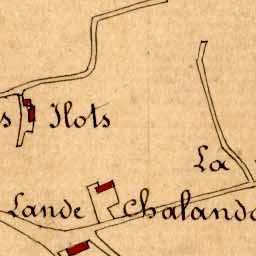 s Ilots
La
Lande Chaland